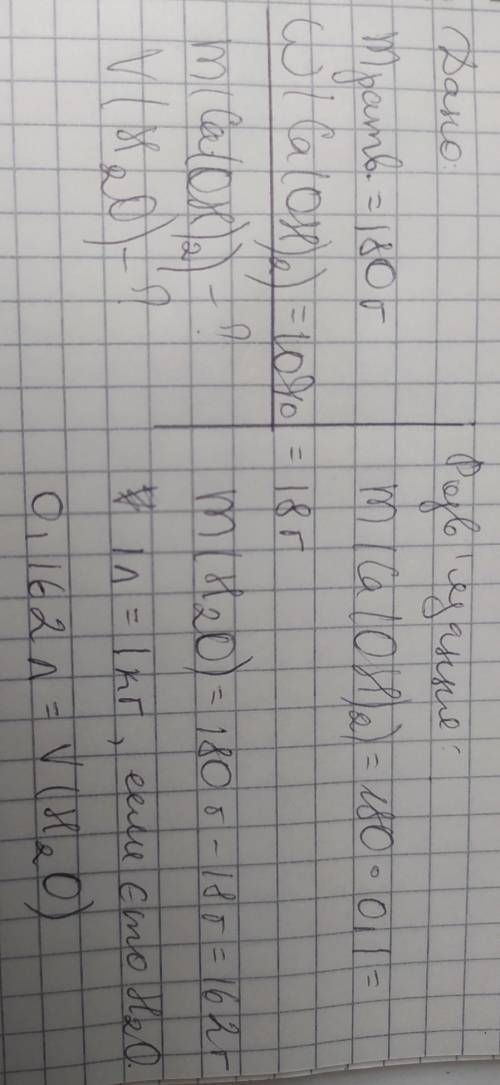 Дано:
m раств. = 180 г
ω(Ca(OH)₂) = 10%
m(Ca(OH)₂) - ?
V(H₂O) - ?
Розв'язання:
m(Ca(OH)₂) = 180 · 0,1 =
= 18 г
m(H₂O) = 180 г - 18 г = 162 г
1 л = 1 кг, если єто H₂O.
0,162 л = V(H₂O)